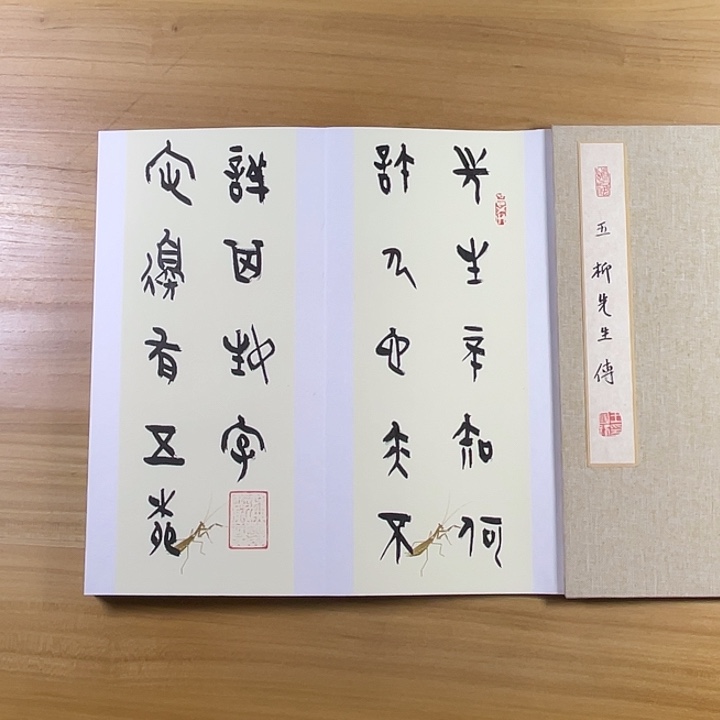 五柳先生傳
先生不知何
許人也亦不
詳其姓字
宅邊有五柳